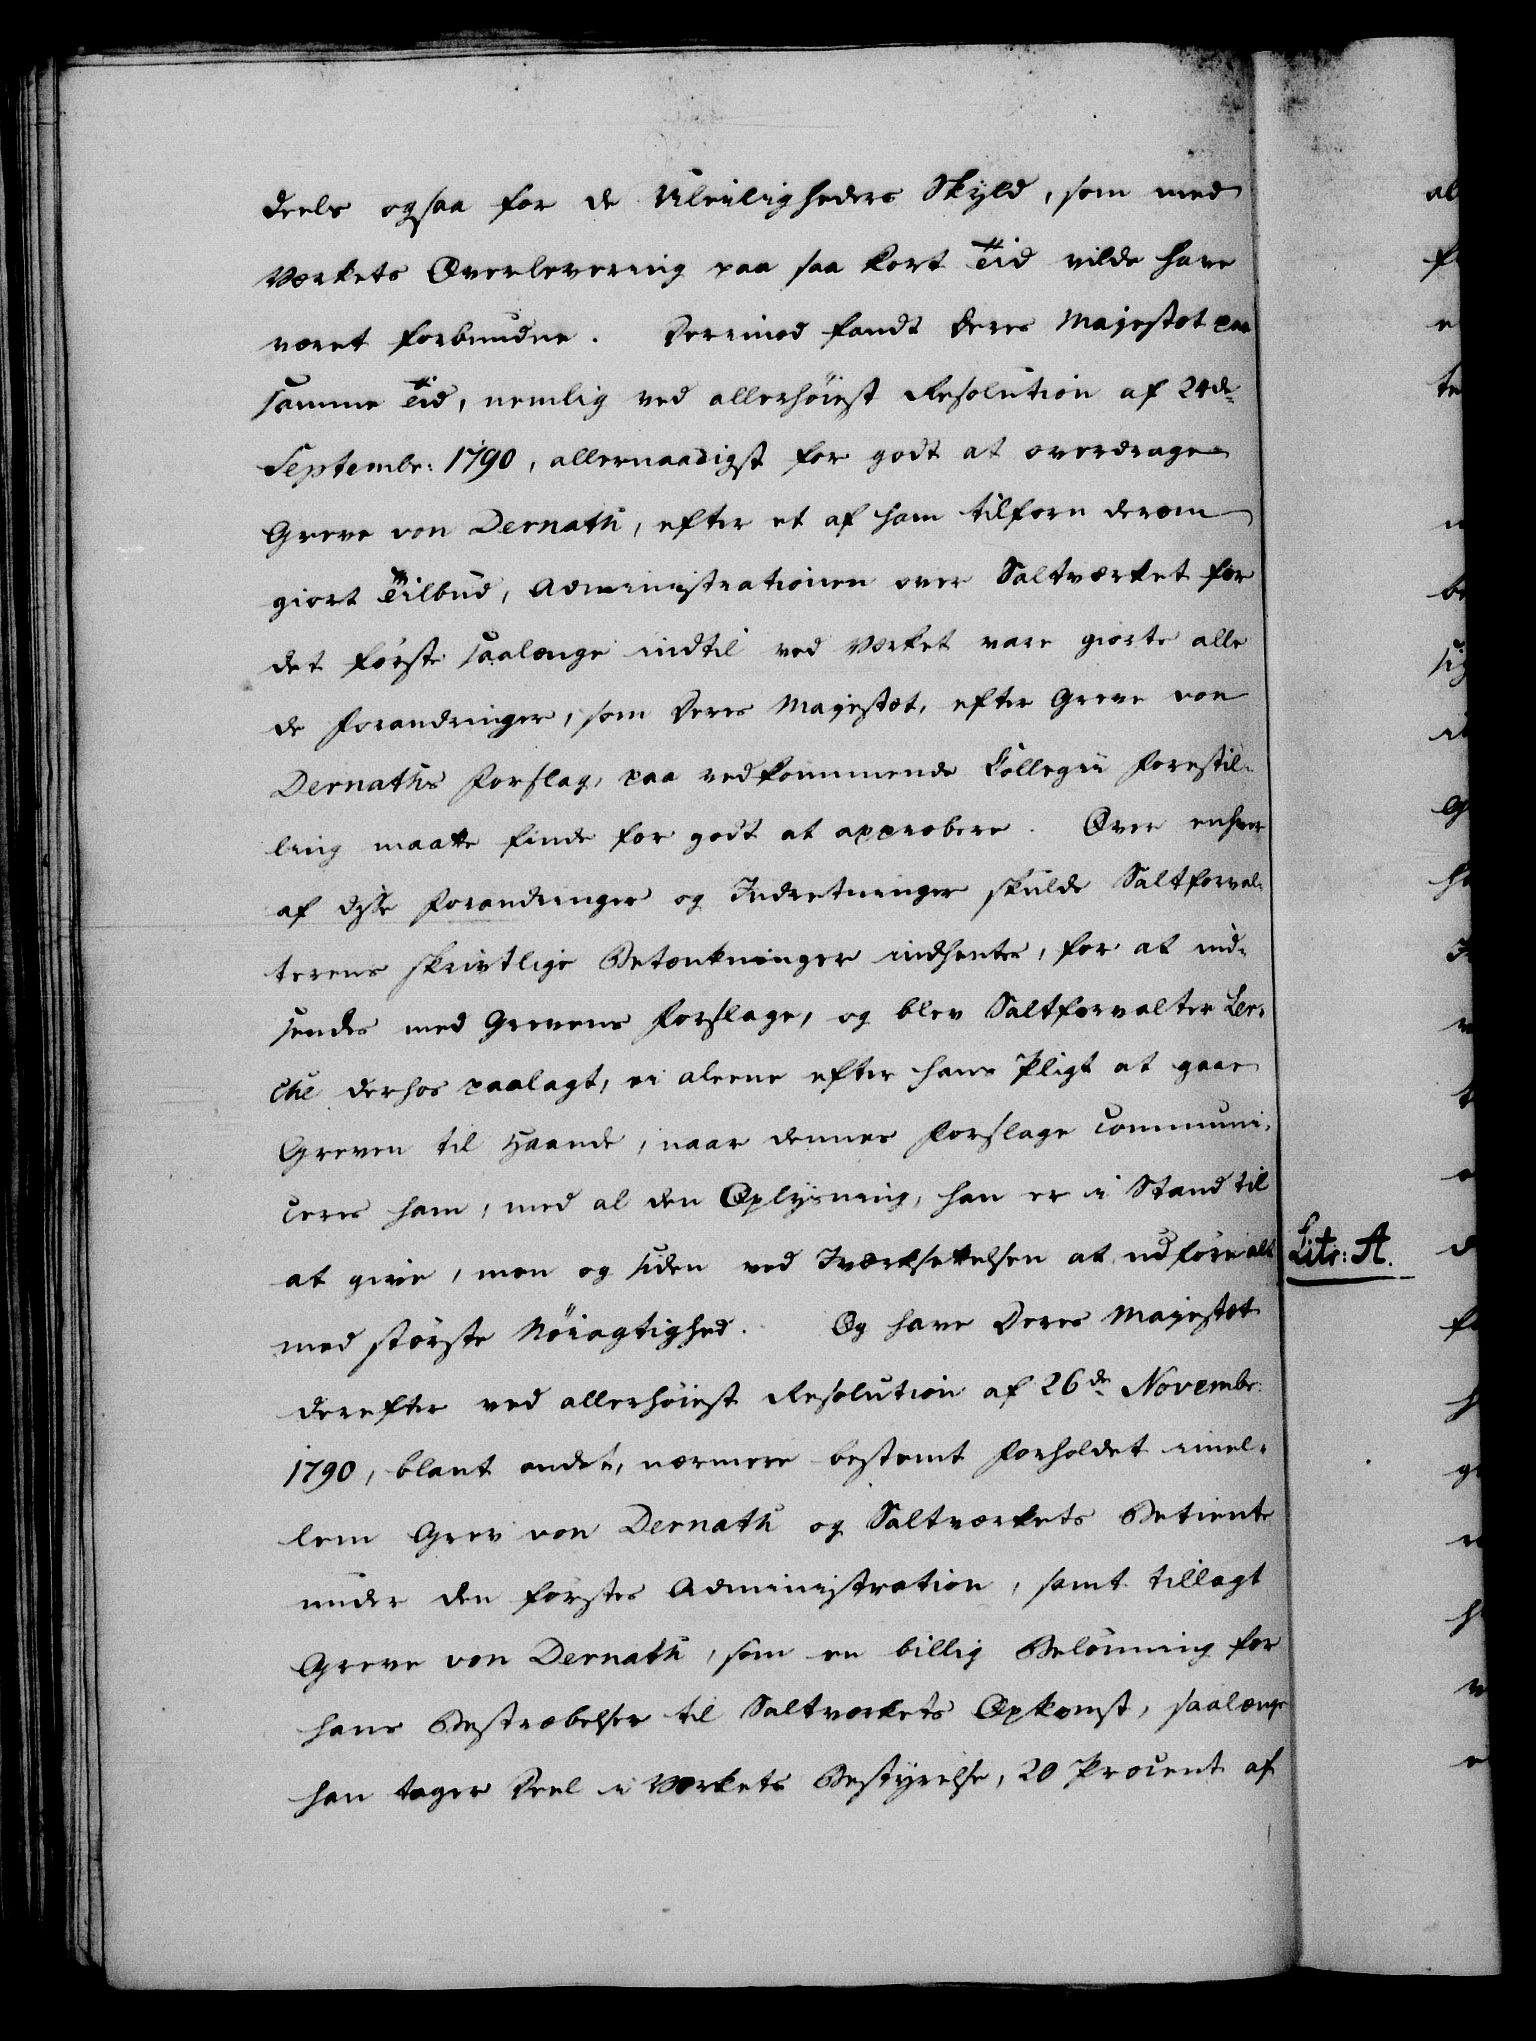 deels ogsaa for de Uleiligheders Skyld, som med
Værkets Overlevering paa saa kort Tid vilde have
været forbundne. Derimod fandt Deres Majestæt paa
samme Tid, nemlig ved allerhöiest Resolution af 24de
Septembr: 1790, allernaadigst for godt at overdrage
Greve von Dernath, efter et af ham tilforn derom
giort Tilbud, Administrationen over Saltværket for
det förste saalænge indtil ved Værket vare giorte alle
de Forandringer, som Deres Majestæt, efter Greve von
Dernaths Forslag, paa vedkommende Collegii Forestil-
ling maatte finde for godt at approbere. Over enhver
af disse Forandringer og Indretninger skulde Saltforval-
terens skrivtlige Betænkninger indhentes, for at ind-
sendes med Grevens Forslage, og blev Saltforvalter Ler-
che derhos paalagt, ei aleene efter hans Pligt at gaae
Greven til Haande, naar dennes Forslage communi-
ceres ham, med al den Oplysning, han er i Stand til
at give, men og siden ved Iværksettelsen at udföre alt
med störste Nöiagtighed. Og have Deres Majestæt
derefter ved allerhöiest Resolution af 26de Novembr:
1790, blant andet, nærmere bestemt Forholdet imel-
lem Grev von Dernath og Saltværkets Betiente
under den förstes Administration, samt tillagt
Greve von Dernath, som en billig Belönning for
hans Bestræbelser til Saltværkets Opkomst, saalænge
han tager Deel i Værkets Bestyrelse, 20 Procent af
Litr: A.